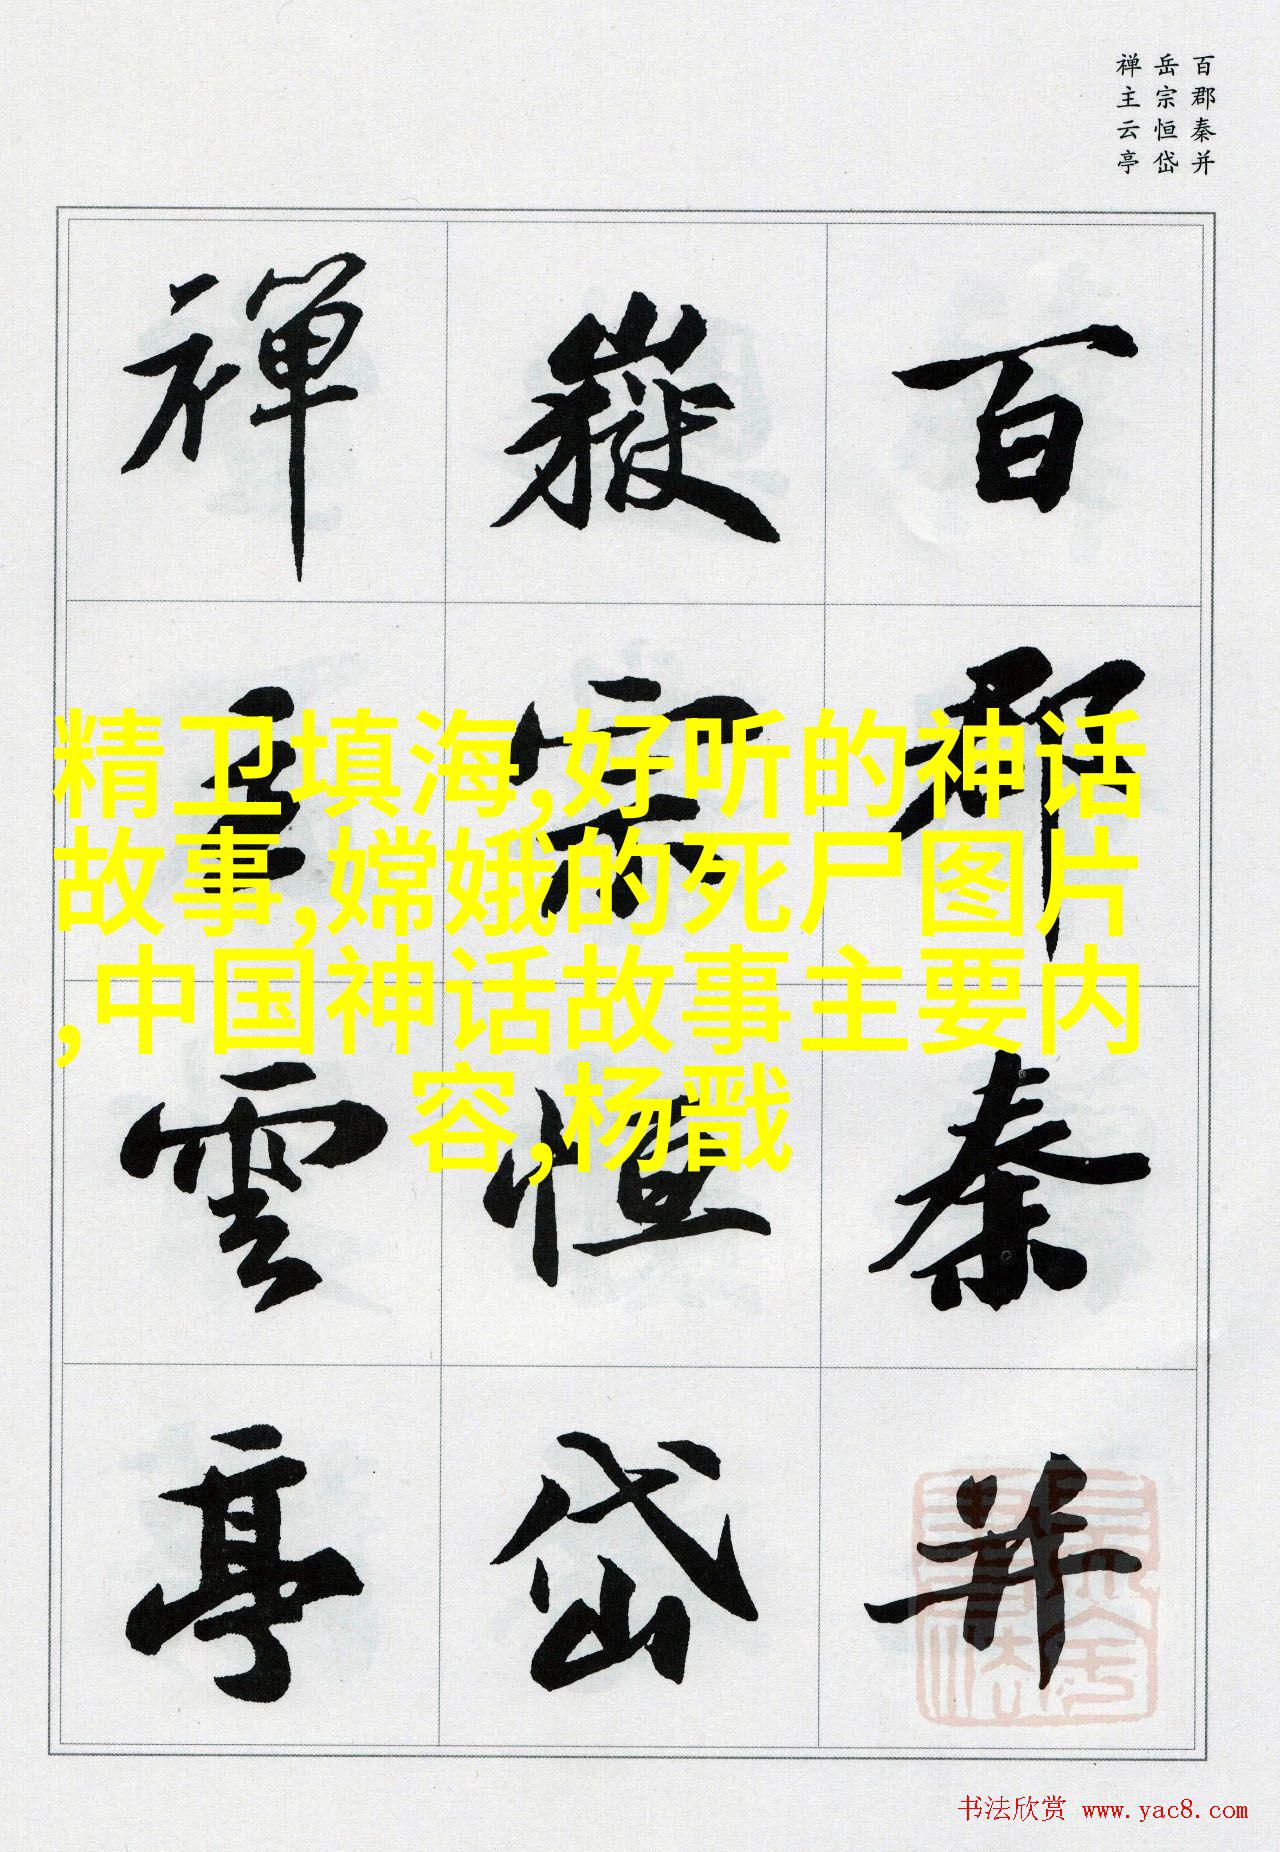 百郡秦并
岳宗恒岱
禅主云亭
百郡秦并
嶽宗恒岱
禪主雲亭
精卫填海,好听的神话
故事,嫦娥的死尸图片
,中国神话故事主要内
容,杨戬
书法欣赏 www.yac8.com